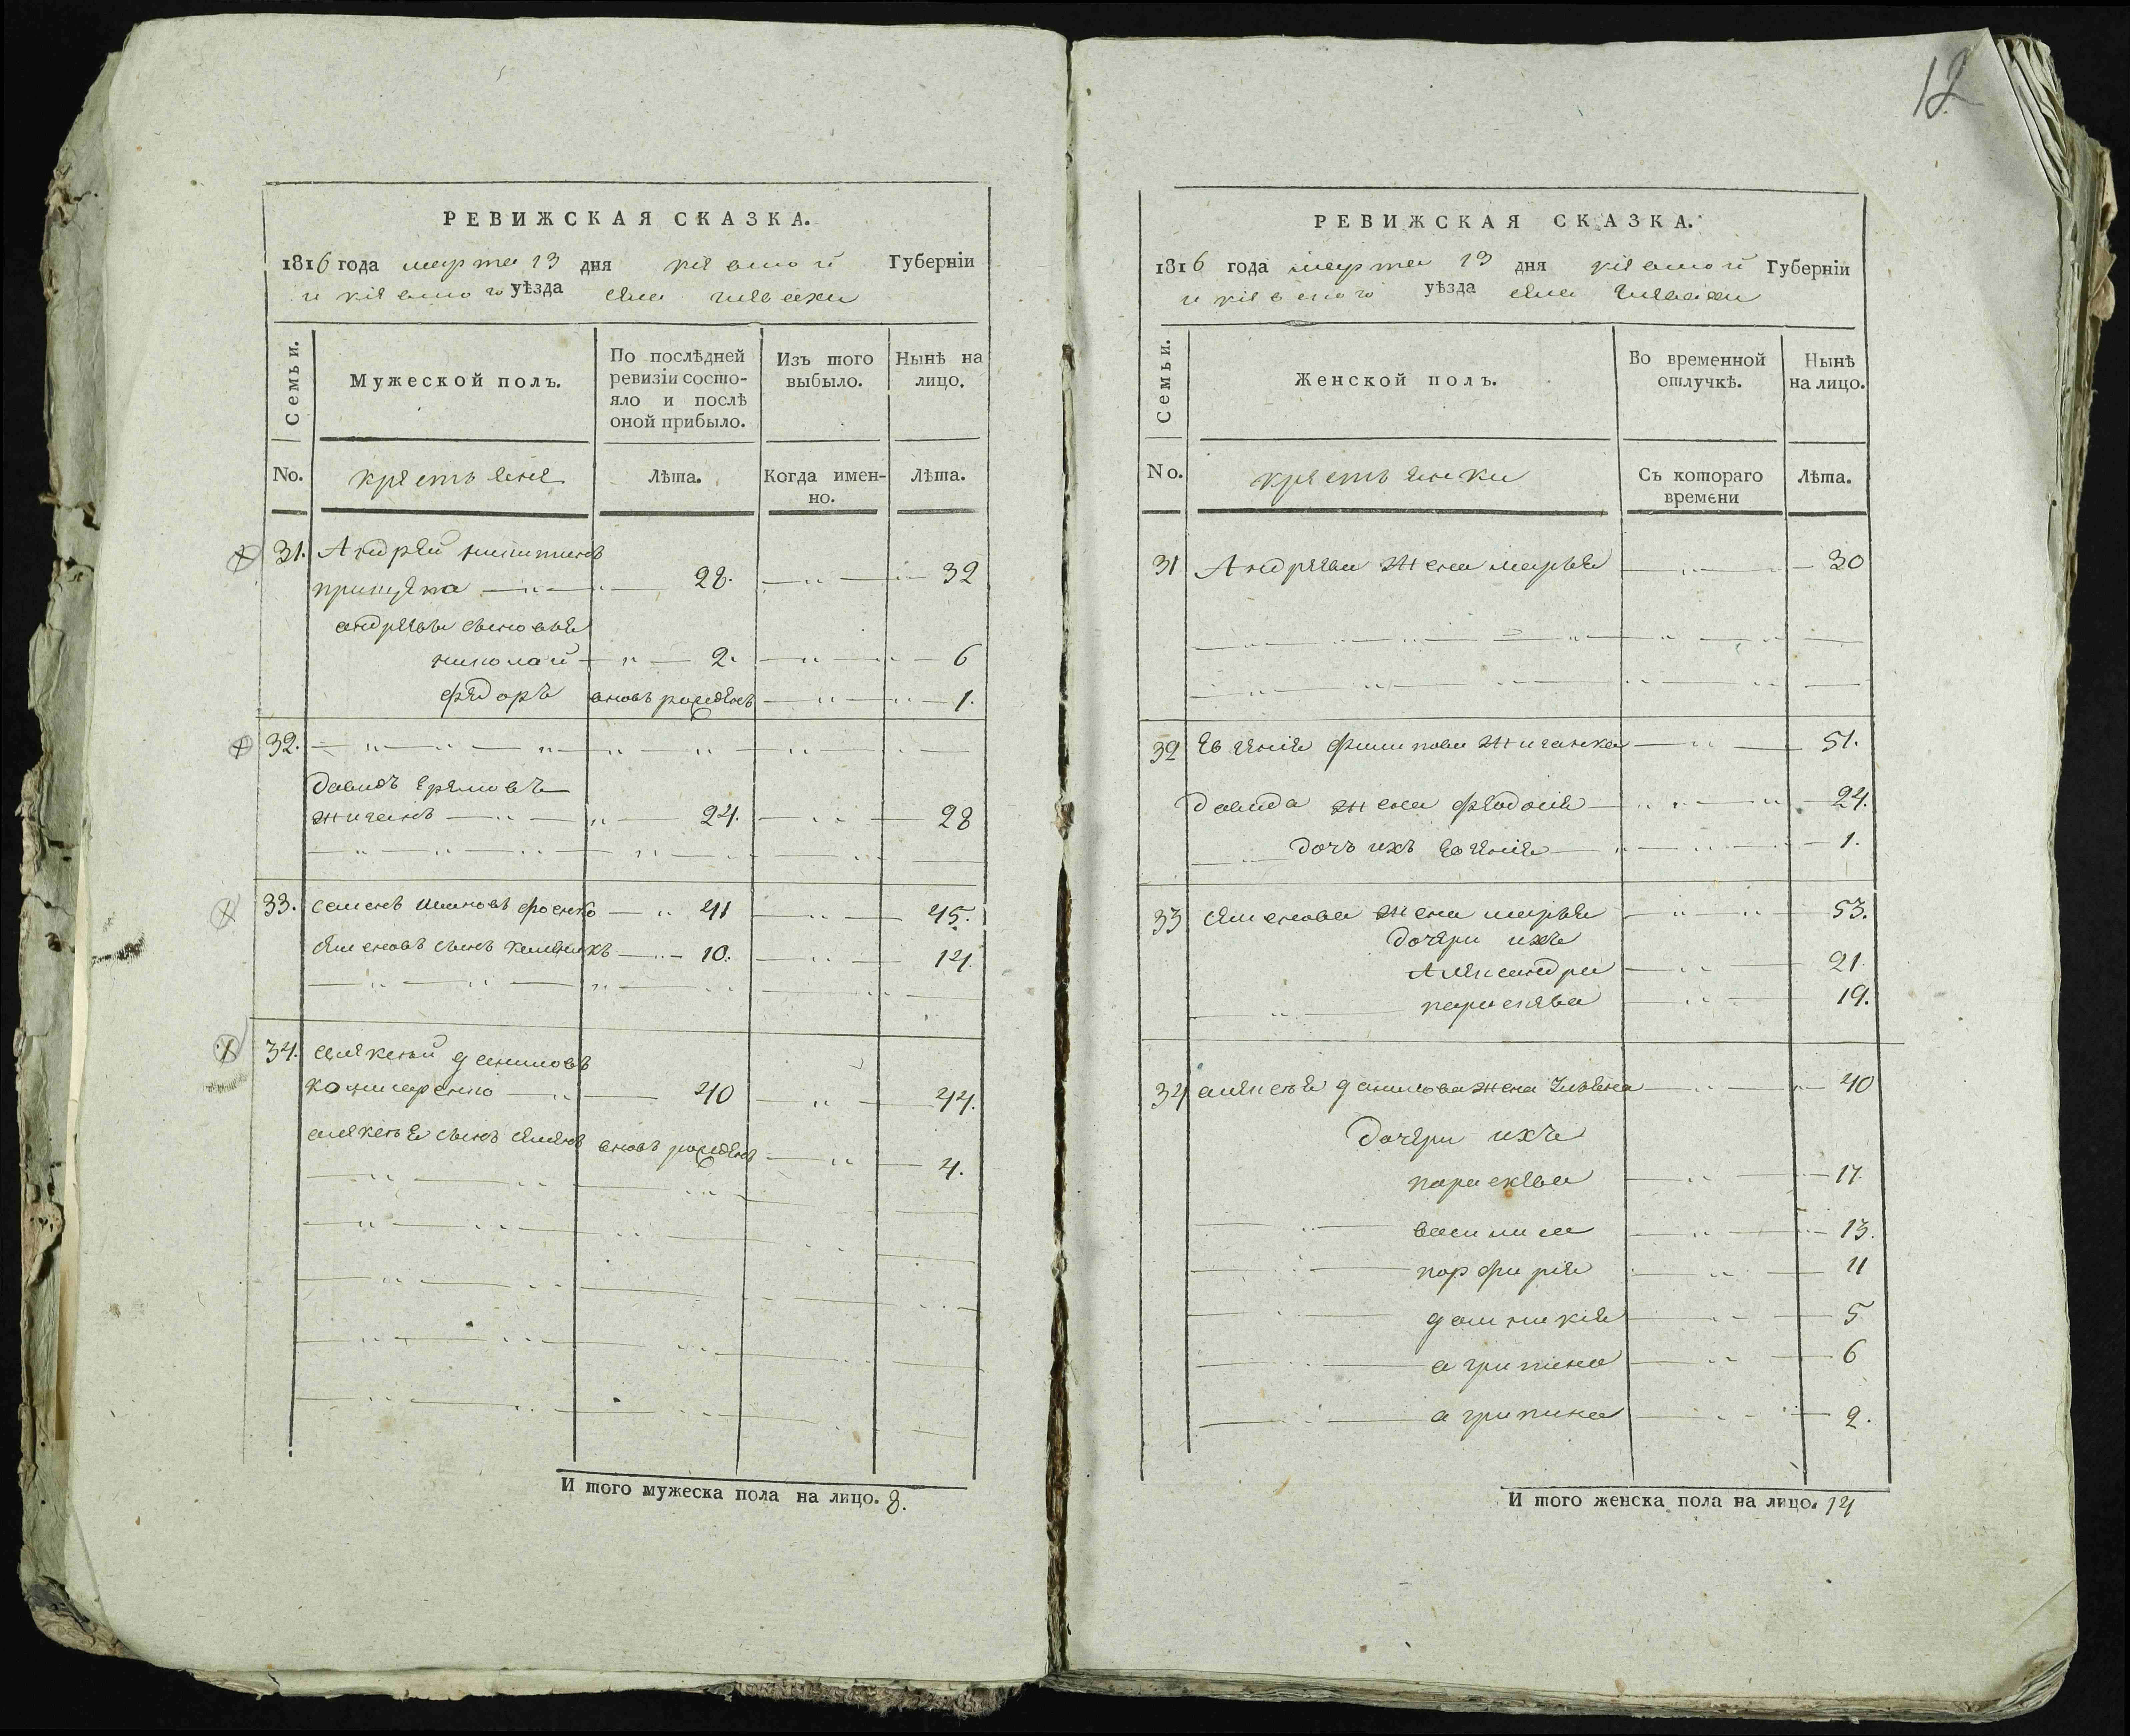 12
РЕВИЖСКАЯ СКАЗКА.
1816 года марта 13 дня кіевской Губерніи
и кіевского уѣзда села
Семьи.
Мужеской полъ.
По послѣдней ревизіи состояло и послѣ оной прибыло.
Изъ того выбыло.
Нынѣ на лицо.
No.
крестьяне
Лѣта.
Когда именно.
Лѣта.
31. Андрей никитинъ
прищепа 28. 32
андреевы сыновья
николай 2. 6
федоръ вновь рожденъ 1.
32.
Давидъ Еремовъ
жиганъ 24. 28
33. семенъ ивановъ фоенко 41 45.
семеновъ сынъ 10. 14.
34. алексей даниловъ
40 44.
алексея сынъ семенъ вновь рожденъ 4.
И того мужеска пола на лицо. 8.
РЕВИЖСКАЯ СКАЗКА.
1816 года марта 13 дня кіевской Губерніи
и кіевского уѣзда села
Семьи.
Женской полъ.
Во временной отлучкѣ.
Нынѣ на лицо.
No.
крестьянки
Съ котораго времени
Лѣта.
31 Андреева жена марья 30
32 Евгенія филипова жиганка 51.
Давида жена феодосія 24.
дочь ихъ Евгенія 1.
33 семенова жена марья 53.
дочери ихъ
Александра 21.
параскева 19.
34 алексея данилова жена 40
дочери ихъ
параскева 17.
василиса 13.
порфирія 11
домникія 5
агрипина 6
агрипина 2.
И того женска пола на лицо. 14